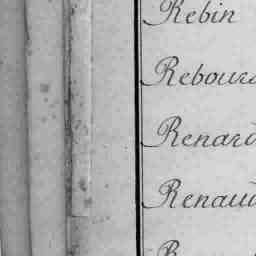 Rebin
Rebours
Renard
Renaud